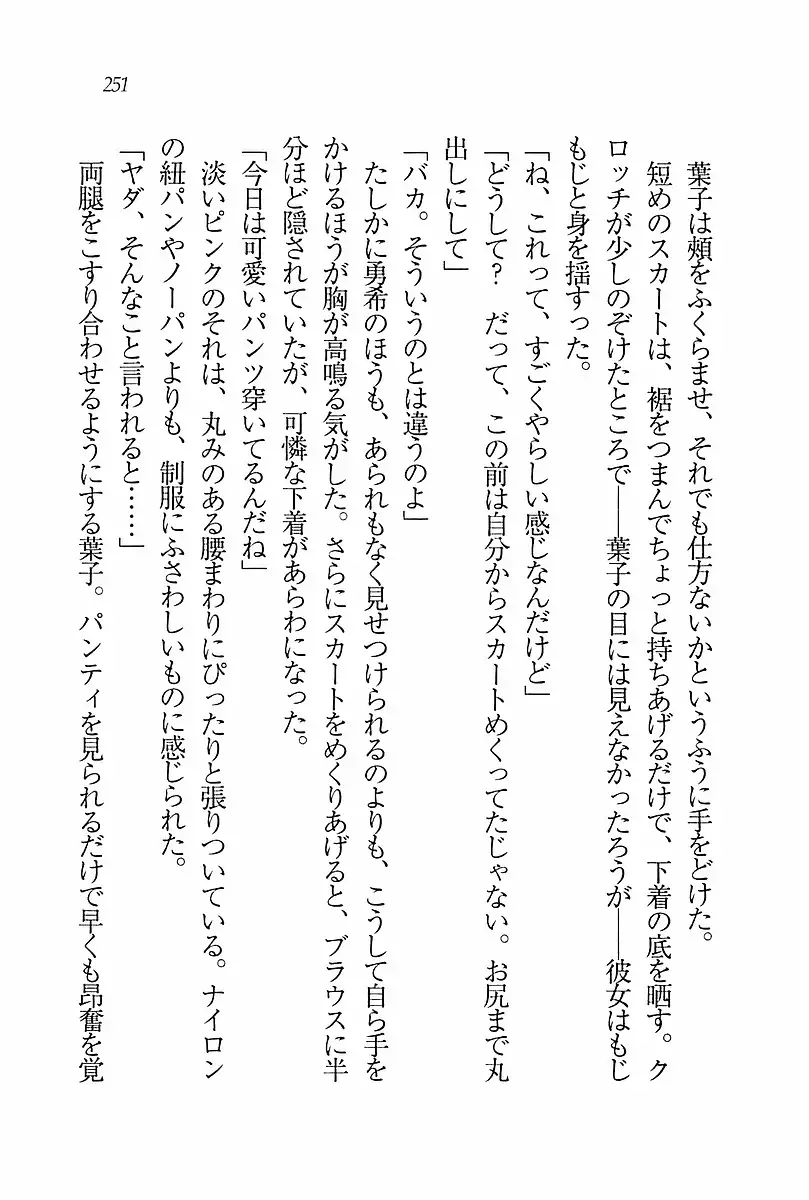 251
葉子は頰をふくらませ、それでも仕方ないかというふうに手をどけた。
短めのスカートは、裾をつまんでちょっと持ちあげるだけで、下着の底を晒す。ク
ロッチが少しのぞけたところで――葉子の目には見えなかったろうが――彼女はもじ
もじと身を揺すった。
「ね、これって、すごくやらしい感じなんだけど」
「どうして?　だって、この前は自分からスカートめくってたじゃない。お尻まで丸
出しにして」
「バカ。そういうのとは違うのよ」
たしかに勇希のほうも、あられもなく見せつけられるのよりも、こうして自ら手を
かけるほうが胸が高鳴る気がした。さらにスカートをめくりあげると、ブラウスに半
分ほど隠されていたが、可憐な下着があらわになった。
「今日は可愛いパンツ穿いてるんだね」
淡いピンクのそれは、丸みのある腰まわりにぴったりと張りついている。ナイロン
の紐パンやノーパンよりも、制服にふさわしいものに感じられた。
「ヤダ、そんなこと言われると……」
両腿をこすり合わせるようにする葉子。パンティを見られるだけで早くも昂奮を覚